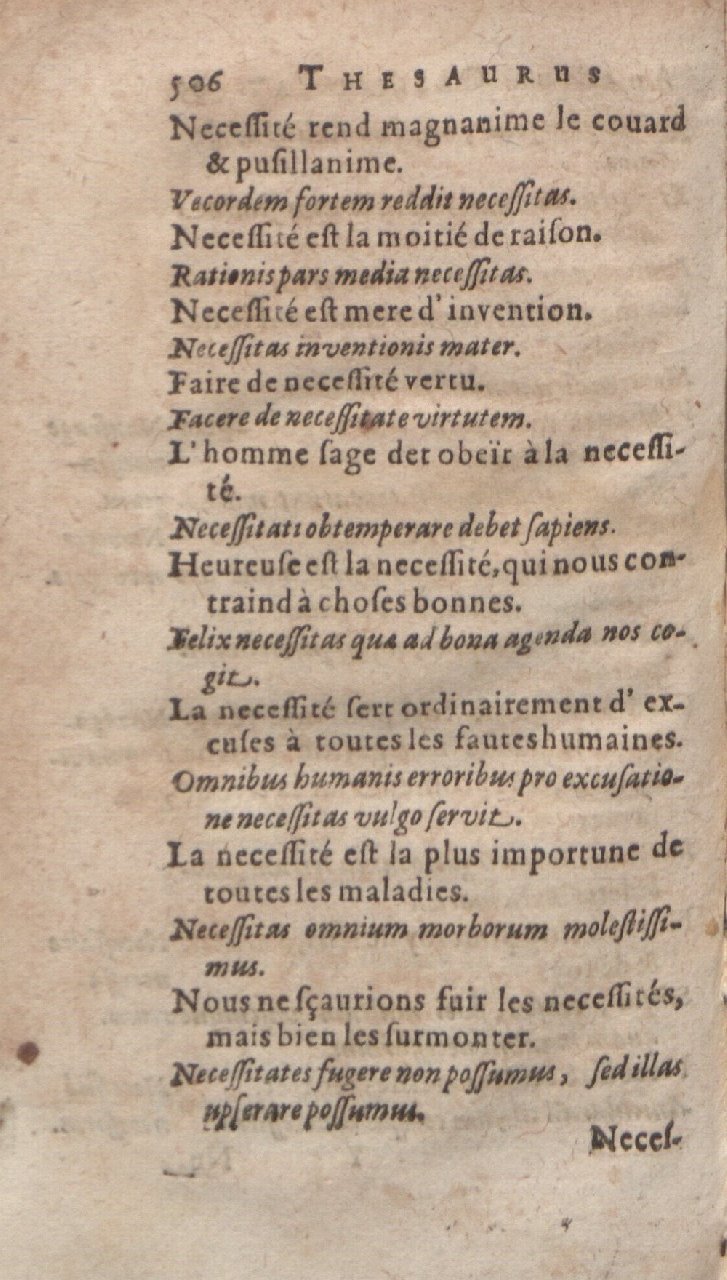 506 THESAURUS
Neceſſité rend magnanime le couard
& puſillanime.
Vecordem fortem reddit neceſſitas.
Neceſſité eſt la moitié de raiſon.
Rationis pars media neceſſitas.
Neceſſité eſt mere d'invention.
Neceſſitas inventionis mater.
Faire de neceſſité vertu.
Facere de neceſſitate virtutem.
L'homme ſage det obeït à la neceſſi-
té.
Neceſſitati obtemperare debet ſapiens.
Heureuſe eſt la neceſſité, qui nous con-
traind à choſes bonnes.
Felix neceſſitas quæ ad bona agenda nos co-
git.
La neceſſité ſert ordinairement d'ex-
cuſes à toutes les fautes humaines.
Omnibus humanis erroribus pro excuſatio-
ne neceſſitas vulgo ſervit.
La neceſſité eſt la plus importune de
toutes les maladies.
Neceſſitas omnium morborum moleſtiſſi-
mus.
Nous ne sçaurions fuir les neceſſités,
mais bien les ſurmonter.
Neceſſitates fugere non poſſumus, ſed illas
upſerare poſſumus.
Neceſ-